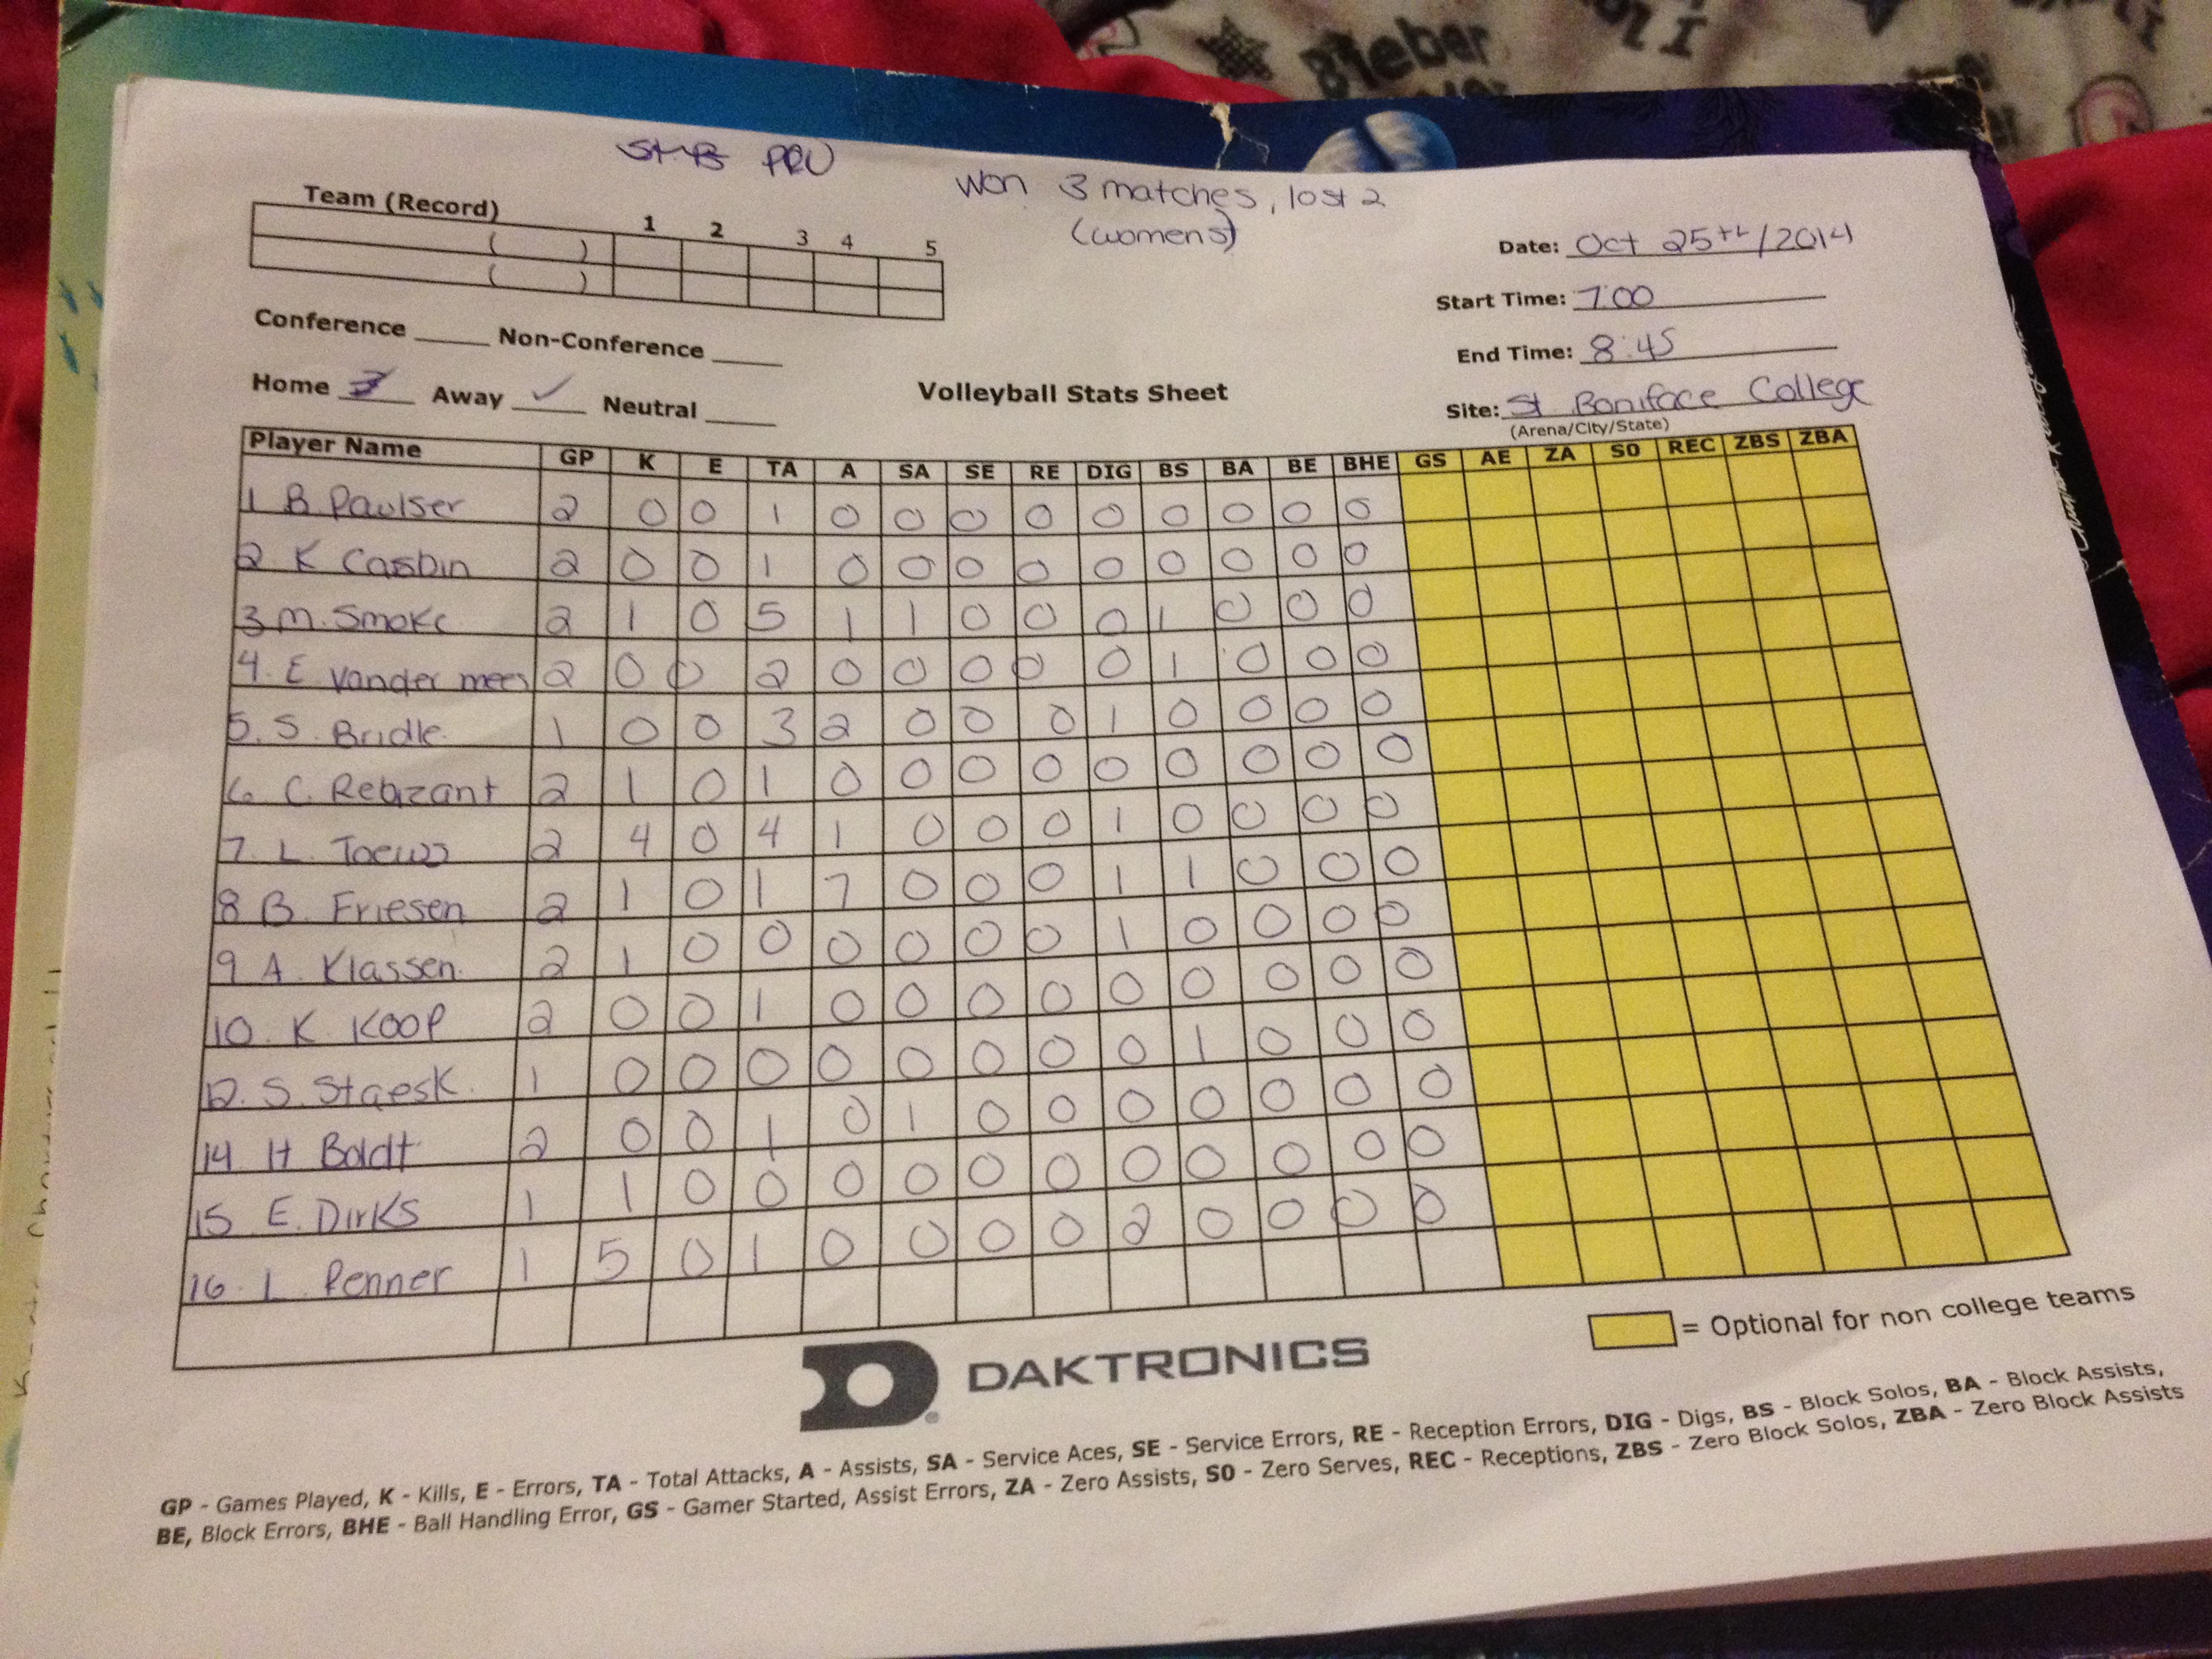 Bieber
S+B PRU
Won 3 matches, lost 2
(womens)
Team (Record) 1 2 3 4 5
( )
( )
Date: Oct 25th/2014
Start Time: 7:00
End Time: 8:45
Conference Non-Conference
Home Away ✓ Neutral
Volleyball Stats Sheet
Site: St Boniface College
(Arena/City/State)
Player Name GP K E TA A SA SE RE DIG BS BA BE BHE GS AE ZA S0 REC ZBS ZBA
1 B Paulser 2 0 0 1 0 0 0 0 0 0 0 0 0
2 K Casbin 2 0 0 1 0 0 0 0 0 0 0 0 0
3 M. Smoke 2 1 0 5 1 1 0 0 0 1 0 0 0
4. E Vander mees 2 0 0 2 0 0 0 0 0 1 0 0 0
5. S. Bridle 1 0 0 3 2 0 0 0 1 0 0 0 0
6 C. Rebizant 2 1 0 1 0 0 0 0 0 0 0 0 0
7. L. Toews 2 4 0 4 1 0 0 0 1 0 0 0 0
8 B. Friesen 2 1 0 1 7 0 0 0 1 1 0 0 0
9 A. Klassen. 2 1 0 0 0 0 0 0 1 0 0 0 0
10. K KOOP 2 0 0 1 0 0 0 0 0 0 0 0 0
12. S. Staesk. 1 0 0 0 0 0 0 0 0 1 0 0 0
14 H Boldt 2 0 0 1 0 1 0 0 0 0 0 0 0
15 E. Dirks 1 1 0 0 0 0 0 0 0 0 0 0 0
16. L Penner 1 5 0 1 0 0 0 0 2 0 0 0 0
DAKTRONICS
= Optional for non college teams
GP - Games Played, K - Kills, E - Errors, TA - Total Attacks, A - Assists, SA - Service Aces, SE - Service Errors, RE - Reception Errors, DIG - Digs, BS - Block Solos, BA - Block Assists,
BE, Block Errors, BHE - Ball Handling Error, GS - Gamer Started, Assist Errors, ZA - Zero Assists, S0 - Zero Serves, REC - Receptions, ZBS - Zero Block Solos, ZBA - Zero Block Assists